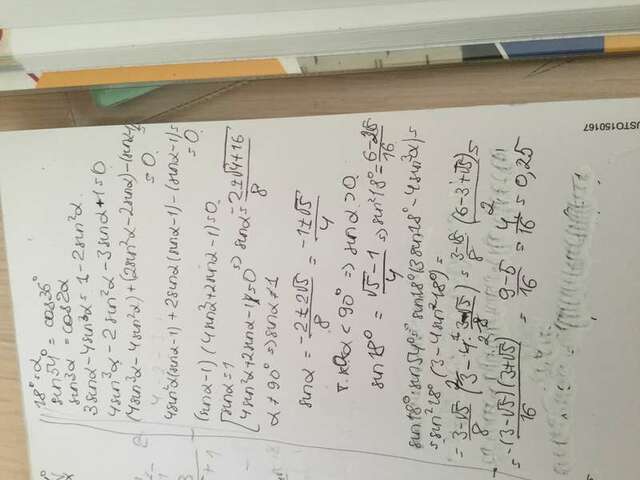 18° = α
sin54° = cos36°
sin3α = cos2α
3sinα - 4sin³α = 1 - 2sin²α
4sin³α - 2sin²α - 3sinα + 1 = 0
(4sin³α - 4sin²α) + (2sin²α - 2sinα) - (sinα-1)=
= 0
4sin²α(sinα-1) + 2sinα(sinα-1) - (sinα-1)=
= 0
(sinα-1)(4sin²α+2sinα-1)=0
[ sinα = 1
4sin²α+2sinα-1=0 => sinα = (-2±√(4+16))/8
α ≠ 90° => sinα ≠ 1
sinα = (-2±2√5)/8 = (-1±√5)/4
т.к. 0<α < 90° => sinα > 0
sin18° = (√5-1)/4 => sin²18° = (6-2√5)/16
sin18°·sin54° = sin18°(3sin18° - 4sin³α) =
= sin²18°(3-4sin²18°) =
= (3-√5)/8 (3-4· (3-√5)/8) = (3-√5)/8 · (6-3+√5)/2 =
= (3-√5)(3+√5)/16 = (9-5)/16 = 4/16 = 0,25
USTO150167